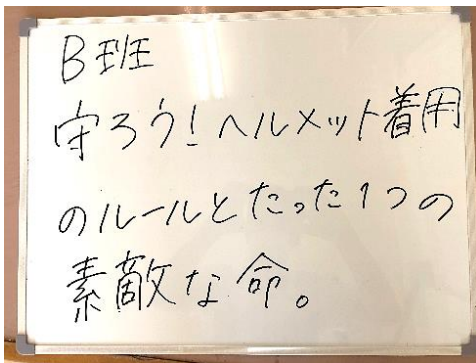 B班
守ろう!ヘルメット着用
のルールとたった1つの
素敵な命。